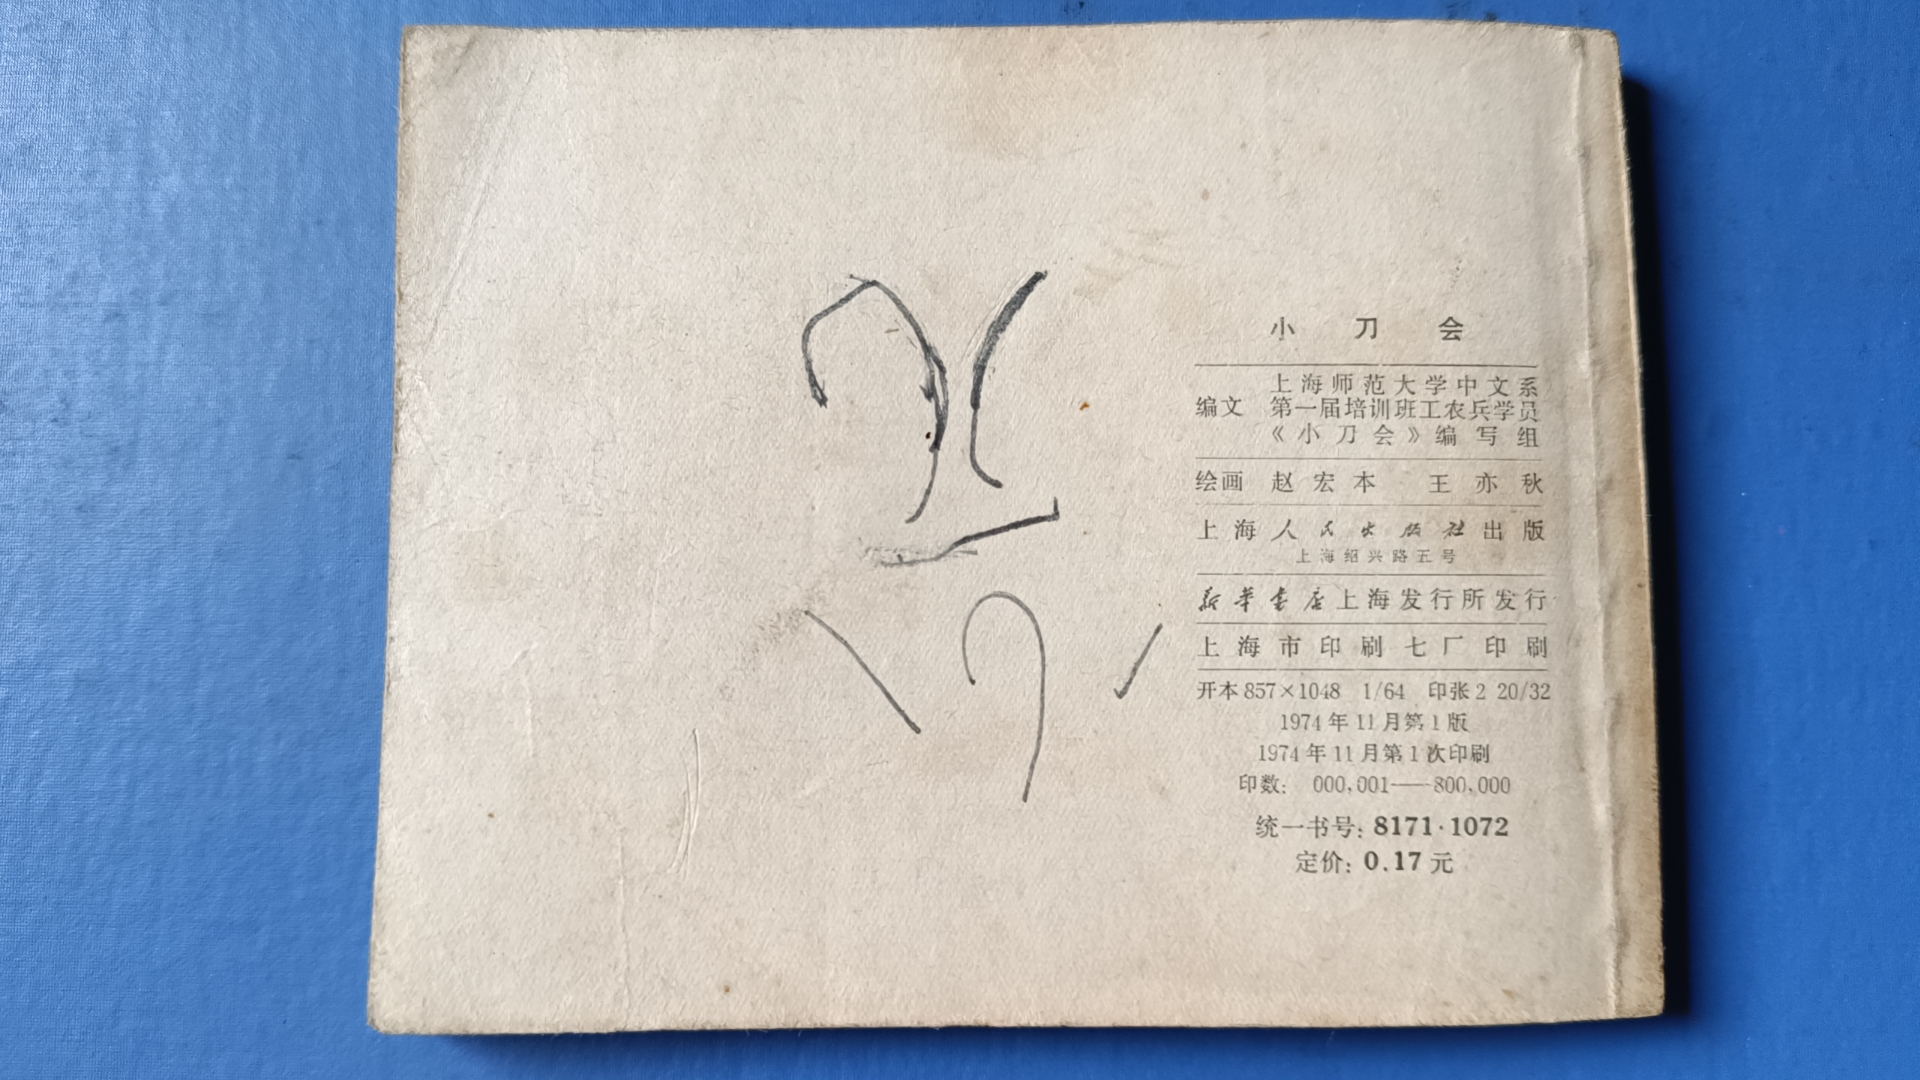 小刀会
上海师范大学中文系
编文 第一届培训班工农兵学员
《小刀会》编写组
绘画 赵宏本 王亦秋
上海人民出版社出版
上海绍兴路五号
新华书店上海发行所发行
上海市印刷七厂印刷
开本 857×1048 1/64 印张 2 20/32
1974 年 11 月第 1 版
1974 年 11 月第 1 次印刷
印数: 000,001——800,000
统一书号: 8171·1072
定价: 0.17 元